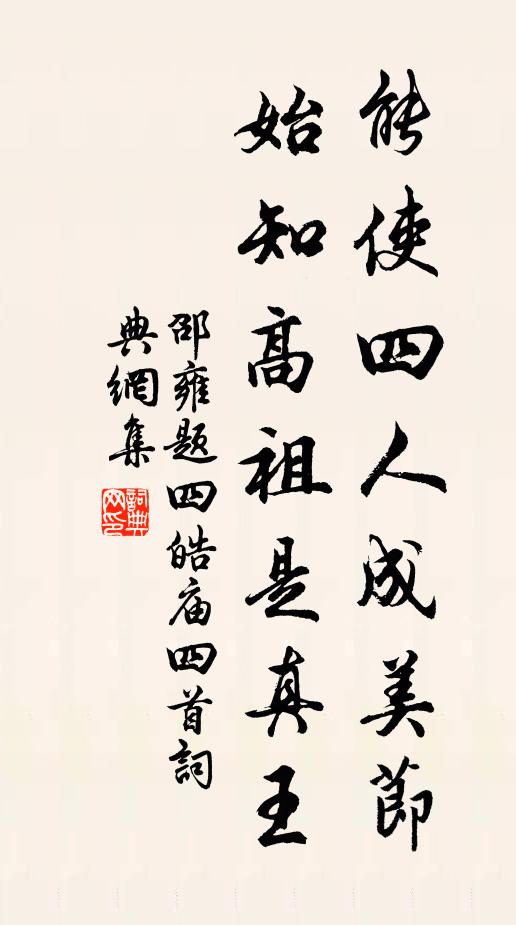 能使四人成美節
始知高祖是真王
邵雍题四皓庙四首詞
典網集
詞典网印